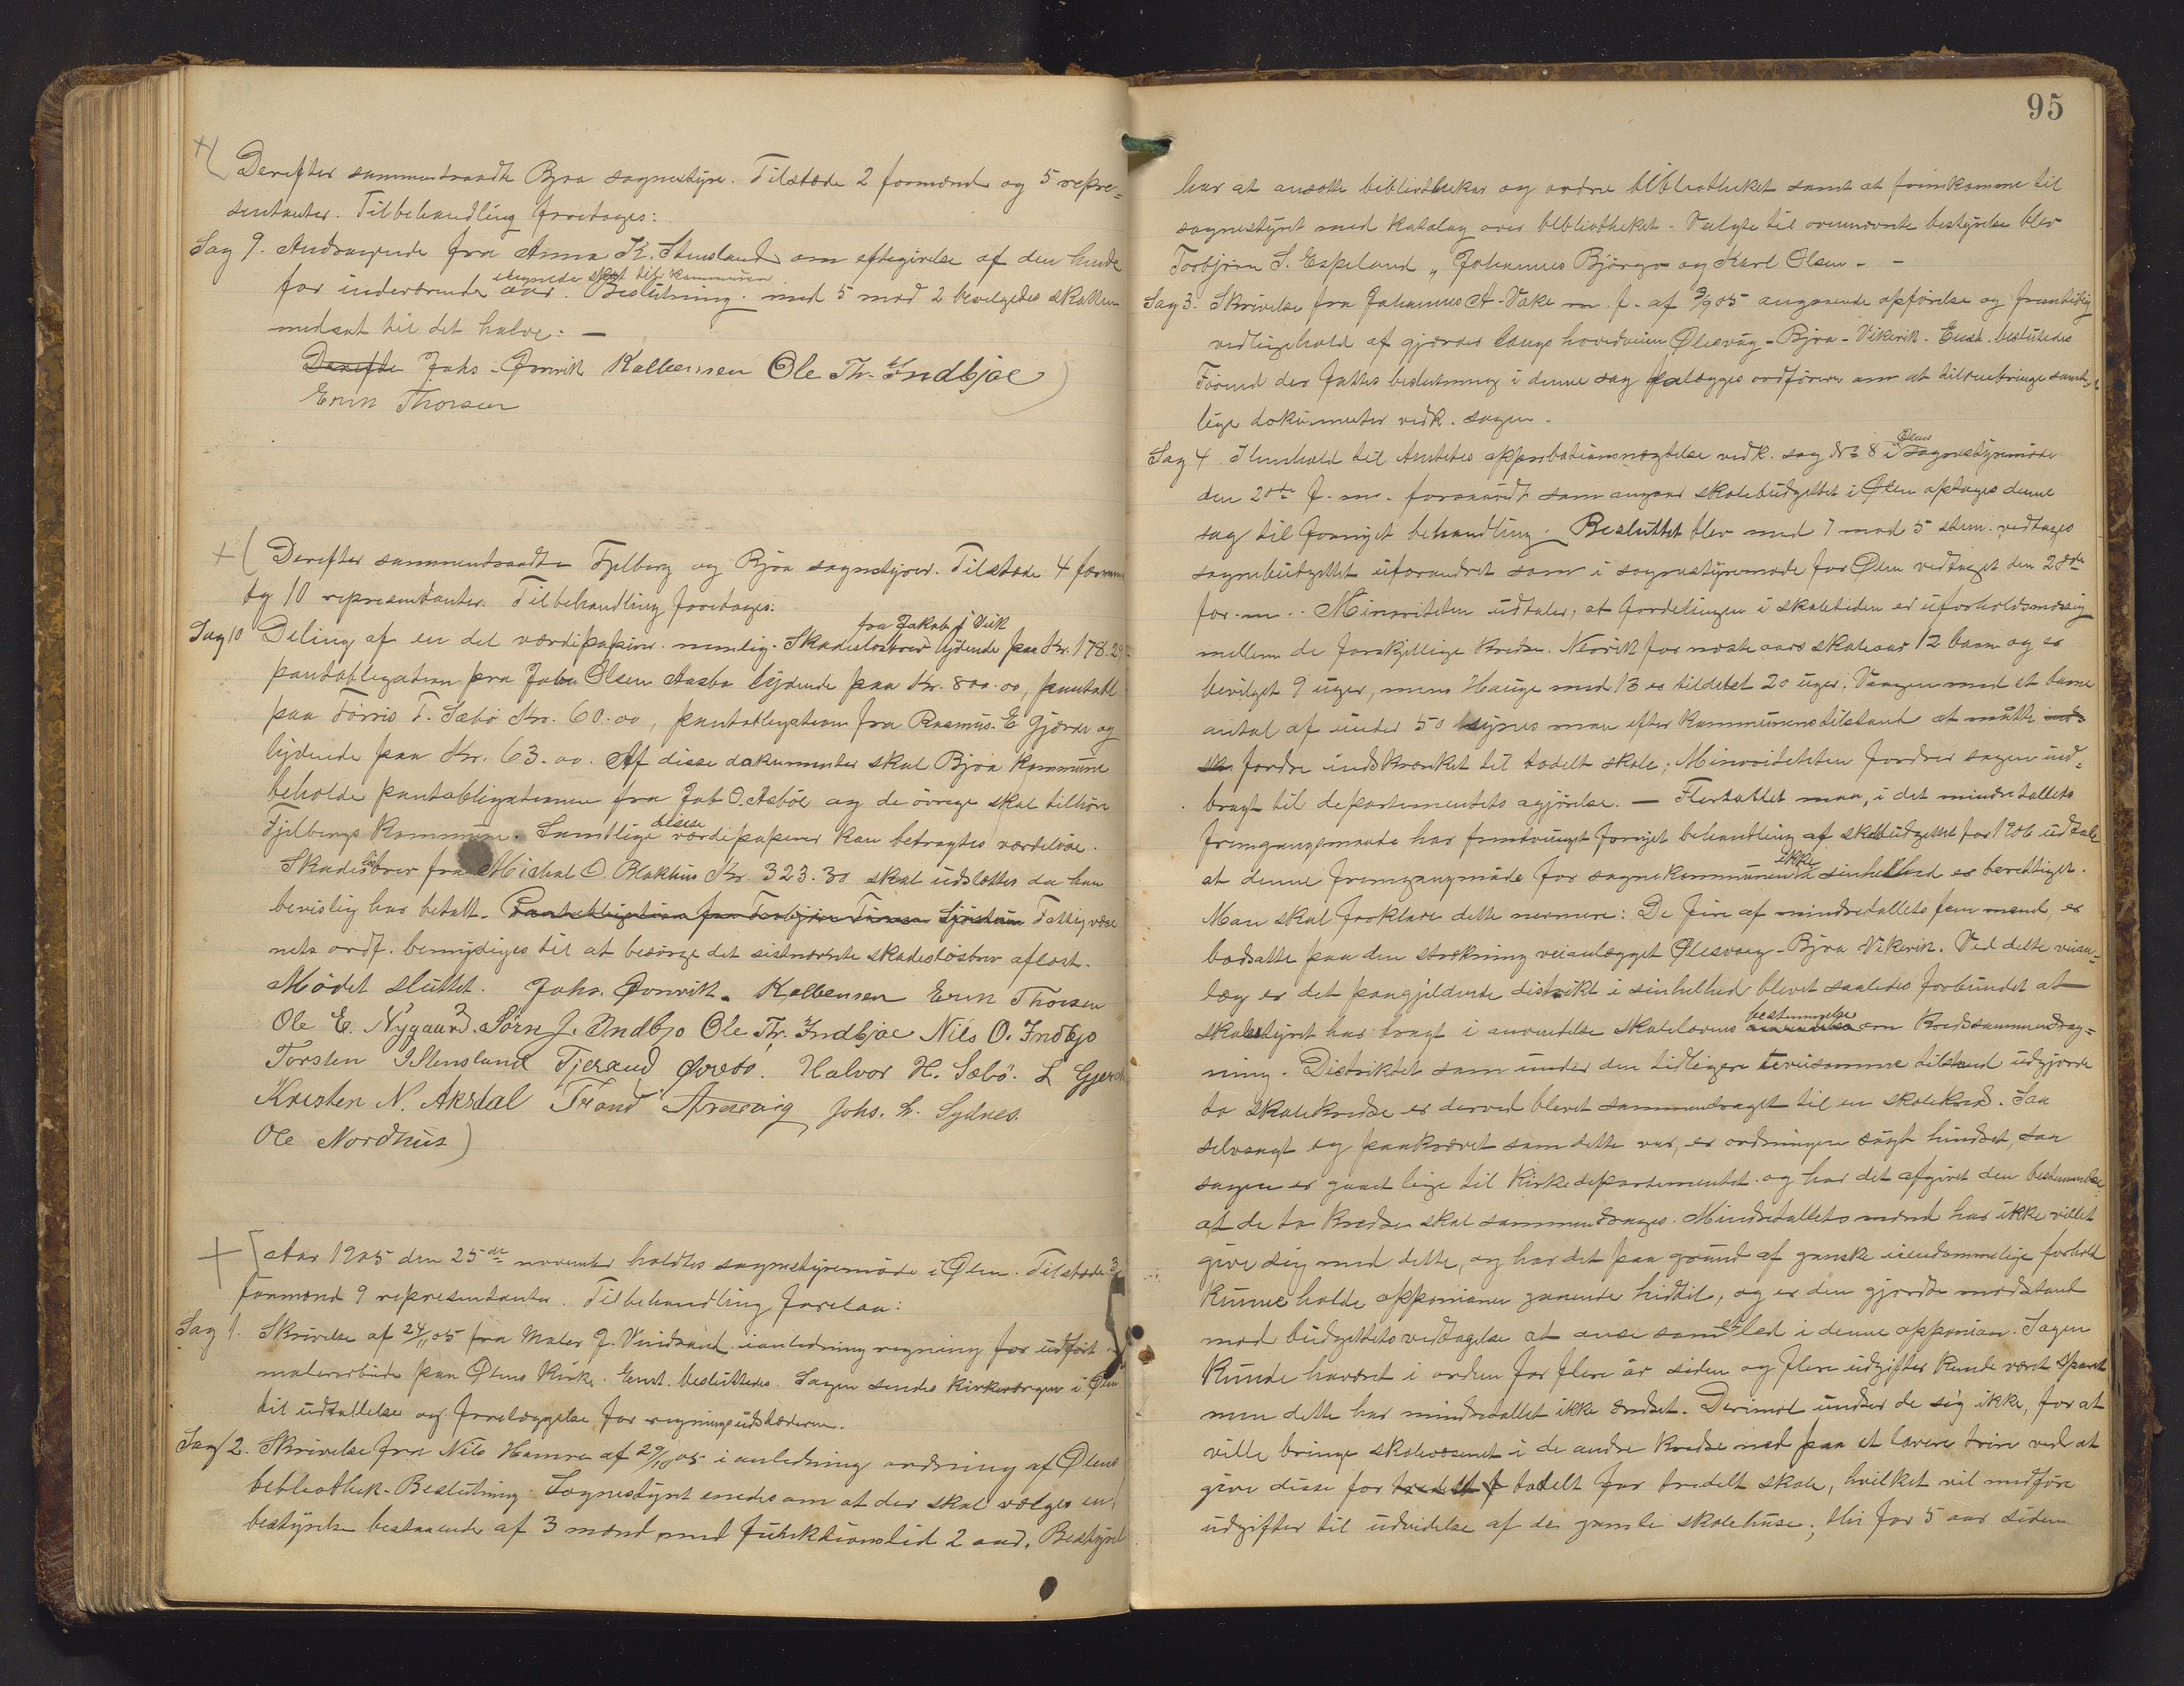 Derefter sammentraadte Bjoa sognestyre. Tilstede 2 formænd og 5 repre=
sentanter. Til behandling foretoges:
Sag 9. Andragende fra Anna K. Stensland om eftegivelse af den hende
ilegnede skat til kommunen
for indeværende aar. Beslutning: med 5 mod 2 bevilgedes skatten
nedsat til det halve: —
Derefte Johs. Ønnvik Kolbensen Ole Th. Indbjoe
Erik Thorsen
Derefter sammentraadte Fjelberg og Bjoa sognestyrer. Tilstede 4 formænd
og 10 representanter. Til behandling foretoges:
fra Jakob J Vik
Sag 10 Deling af en del værdipapirer. nemlig. Skadesløsbrev lydende paa Kr. 178.29
pantobligation fra Jakob Olsen Aasbø lydende paa Kr. 800.00, pantobl
paa Tørris T. Sæbø Kr. 60.00, pantobligation fra Rasmus E Gjærde og
lydende paa Kr. 63.00. Af disse dokumenter skal Bjoa kommune
beholde pantobligationen fra Jak O. Asbøe og de øvrige skal tilhøre
Fjelbergs kommune. Samtlige disse værdipapirer kan betragtes værdeløse.
Skadesløsbrev fra Michal O. Blakhus Kr. 323.30 skal udslettes da han
bevislig har betalt. Pantobligation fra Torbjørn Tørresen Sjøstuen Fattigvæse
nets ordf. bemyndiges til at besørge det sistnævnte skadesløsbrev aflæst.
Mødet sluttet. Johs. Ønnvik. Kolbensen Erik Thorsen
Ole E. Nygaard. Sørn J. Indbjo Ole Th. Indbjoe Nils O. Indbjo
Torsten I Stensland Tjeraud Øvrebø. Halvor H. Sæbø. L Gjerde
Kristen N. Aksdal Trond Aravig Johs. L. Sydnes.
Ole Nordhus
Aar 1905 den 25de november holdtes sognestyremøde i Ølen. Tilstede 3
formænd 9 representanter. Til behandling forelaa:
Sag 1. Skrivelse af 24/11 05 fra Maler J. Vindsand i anledning regning for udført
malerarbeide paa Ølens Kirke. Enst. besluttedes. Sagen sendes kirkeværgen i Ølen
til udtallelse og forelæggelse for regningsudstederen.
Sag 2. Skrivelse fra Nils Hamre af 29/10 05 i anledning ordning af Ølens
bebliothek. Beslutning: Sognestyret enedes om at der skal vælges en
bestyrelse bestaaende af 3 mænd med funktionstid 2 aar. Bestyrel
95
har at ansætte bibliothekar og ordne bibliotheket samt at fremkomme til
sognestyret med katalog over bibliotheket. Valgte til ovennævnte bestyrelse blev
Torbjørn S. Espeland „ Johannes Bjørgo og Karl Olsen - -
Sag 3. Skrivelse fra Johannes A. Vake m. f. af 3/9 05 angaaende opførelse og fremtidig
vedligehold af gjærder langs hovedveien Ølesvåg - Bjoa - Vikevik. Enst. besluttedes
Førend der fattes beslutning i denne sag paalægges ordføreren om at tilveiebringe samt-
lige dokumenter vedk. sagen.
Ølens
Sag 4 I henhold til Amtets approbationsnægtelse vedk. sag No 8 i sognestyremøde
den 28de f. m. foraavidt som angaar skolebudgettet i Ølen optages denne
sag til fornyet behandling. Besluttet blev med 7 mod 5 stem. vedtages
sognebudgettet uforandret som i sognestyremøde for Ølen vedtaget den 28de
for. m. Minoriteten udtaler, at fordelingen i skoletiden er uforholdsmæssig
mellem de forskjellige kredse. Nervik for næste aars skoleaar 12 barn og er
bevilget 9 uger, mens Hauge med 13 er tildelt 20 uger. Vaagen med et barne
antal af under 50 synes man efter kommunens tilstand at måtte ind=
sk fordre indskrænket til todelt skole; Minoriteten fordrer sagen ind=
bragt til departementets afgjørelse. — Flertallet maa, i det mindretallets
fremgangsmaade har fremtvunget fornyet behandling af skolebudgettet for 1906 udtale
ikke
at denne fremgangsmåde for sognekommunen i sin helhed er berettiget.
Man skal forklare dette nærmere: De fire af mindretallets fem mænd, er
bosatte paa den strækning veianlægget Ølesvaag - Bjoa Vikevik. Ved dette veian=
læg er det paagjeldende distrikt i sin helhed blevet saaledes forbundet at
bestemmelse
skolestyret har bragt i anvendelse skolelovens anvendelse om Kredssammendrag=
ning. Distriktet som under den tidligere veiløse tilstand udgjorde
to skolekredse er derved blevet sammendraget til en skolekred. Saa
selvsagt og paakrævet som dette var, er ordningen søgt hindret, saa
sagen er gaaet lige til Kirkedepartementet og har det afgivet den bestemmelse
at de to kredse skal sammendrages. Mindretallets mænd har ikke villet
give sig med dette, og har det paa grund af ganske eiendommelige forhold
kunne holde opposionen gaaende hidtil, og er den gjordte modstand
mod budgettets vedtagelse at anse som et led i denne opposion. Sagen
kunde haværet i orden for flere år siden og flere udgifter kunde været sparet
men dette har mindretallet ikke ændset. Derimod undser de sig ikke, for at
ville bringe skolevæsenet i de andre kredse ned paa et lavere trin ved at
give disse for tredelt f todelt for tredelt skole, hvilket vil medføre
udgifter til udvidelse af de gamle skolehuse; thi for 5 aar siden